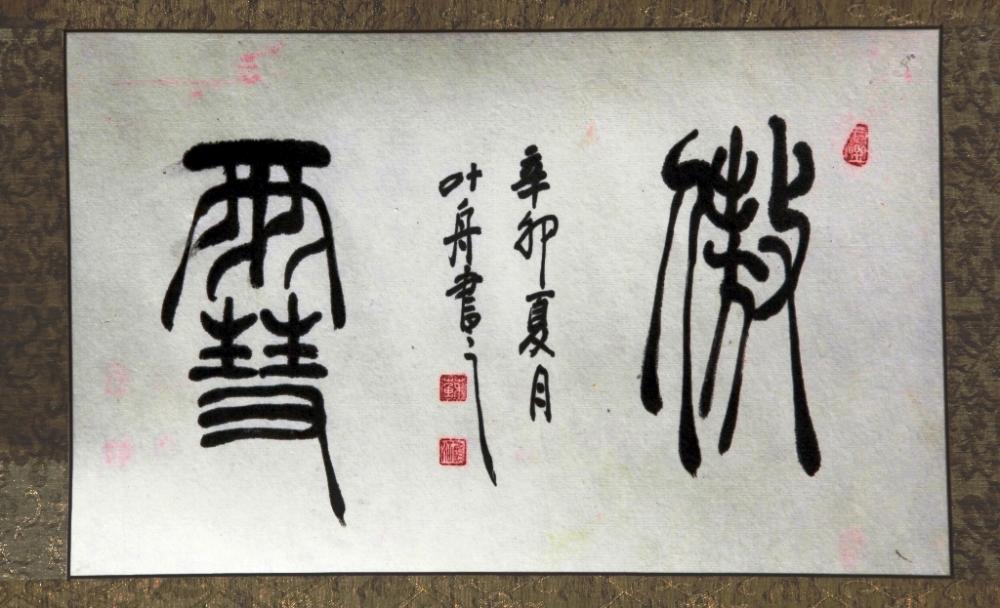 傲
雪
辛卯夏月
叶舟書之